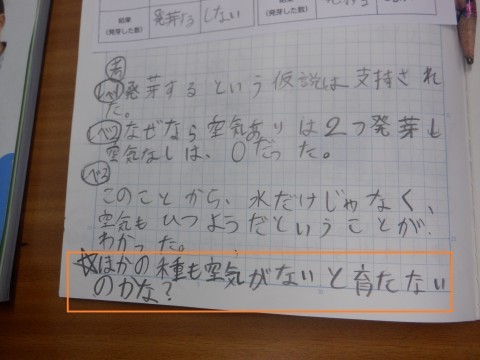 結果
(発芽した数)
発芽する
しない
結果
(発芽した数)
考
レベ1 発芽するという仮説は支持され
た。
レベ2 なぜなら空気ありは2つ発芽し
空気なしは、0だった。
レベ3
このことから、水だけじゃなく、
空気もひつようだということが、
わかった。
☆ほかの種も空気がないと育たない
のかな?